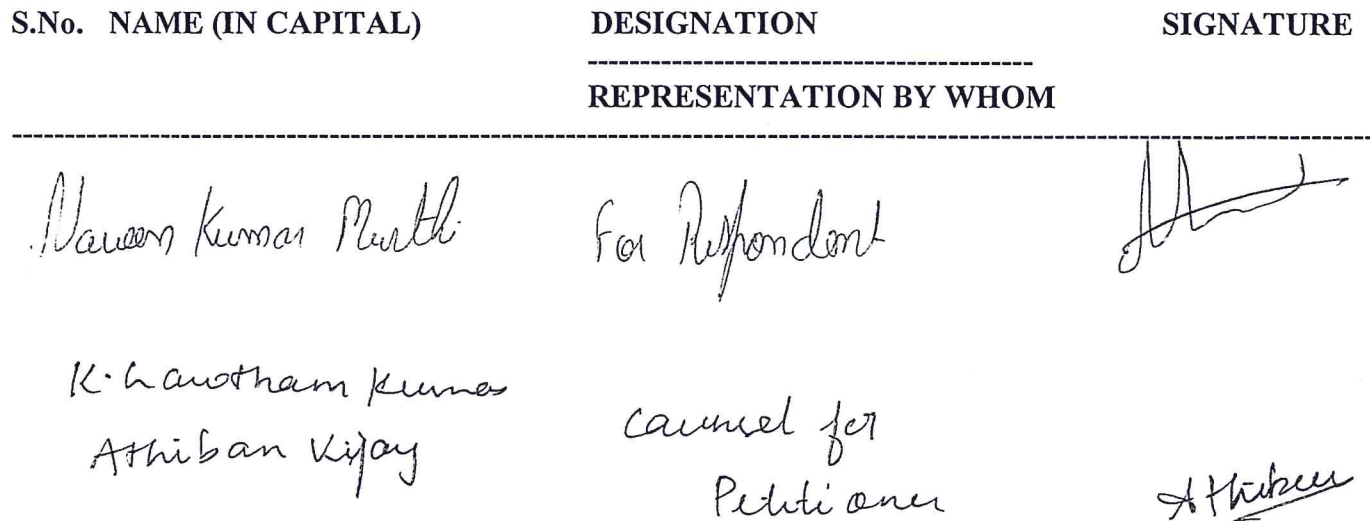 S.No. NAME (IN CAPITAL) DESIGNATION SIGNATURE
REPRESENTATION BY WHOM
Naveen Kumar Murthi For Respondent
K. Gawtham Kumar
Athiban Vijay Counsel for
Petitioner Athiban